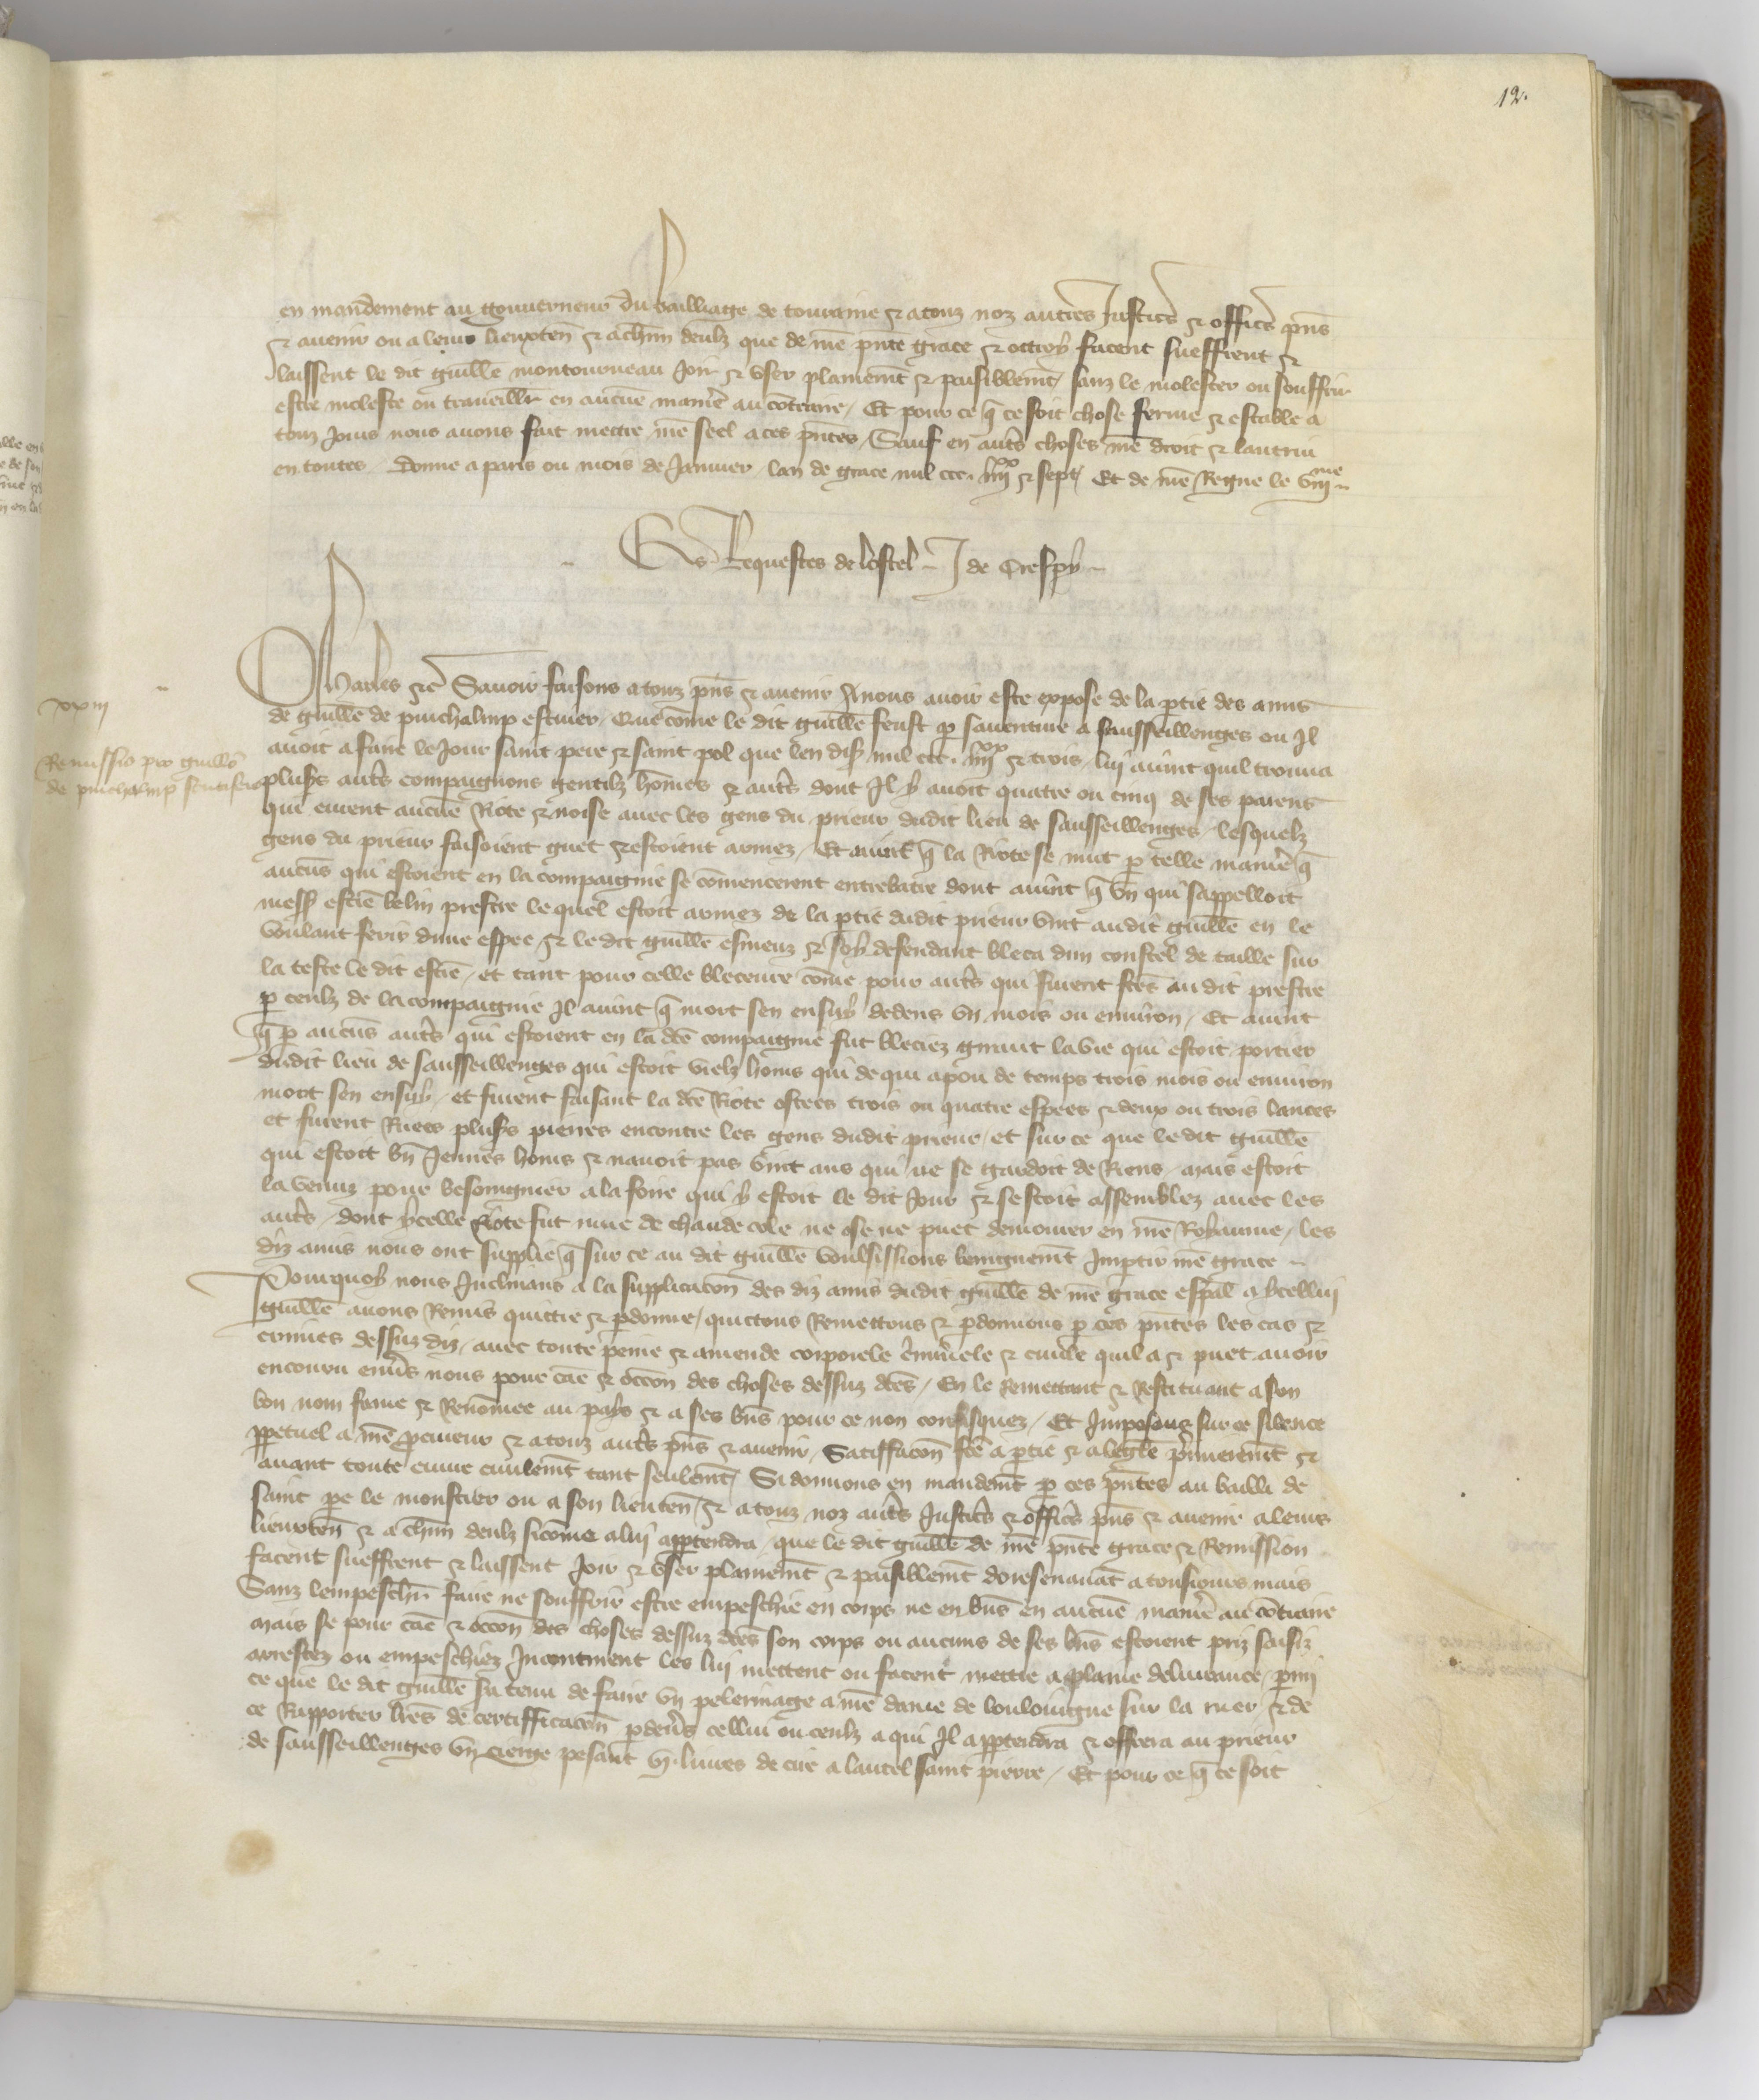 12.
en mandement au gouverneur du bailliage de touraine & a touz noz autres Justic̃ & offic̃ pñs
& avenir ou a leurs lieuxteñ & a chũn deulz que de nr̃e pñte grace & ottroy facent sueffrent &
laissent le dit guill̃e montourneau Joir & user plainem̃t & paisiblem̃t / sanz le molester ou souffrir
estre moleste ou travaillie en aucũe manie͂ au contraire / Et pour ce q̃ ce soit chose ferme & estable a
touz Jours nous avons fait mettre nr̃e seel a ces pñtes / Sauf en aut̃s choses nr̃e droit & lautrui
en toutes / Donne a paris ou mois de Janvier lan de grace mil ccc. iiijxx & sept / Et de nr̃e Regne le viijme
Es Requestes de lostel J de Crespy
xxiij
Charles &c̃ Savoir faisons a touz pñs & avenir A nous avoir este expose de la ptie des amis
de guill̃e de puichalmp escuier / Que cõme le dit guill̃e feust p saventure a sausseillenges ou Il
Remissio pro guillõ
de puichalmp scutifero
avoit a faire le Jour saint pere & saint pol que len dis mil ccc. iiijxx & trois / lui avint quil trouva
plus̃s aut̃s compaignons gentilz hõmes & aut̃s dont Il y avoit quatre ou cinq de ses parens
qui eurent aucũe Riote & noise avec les gens du prieur dudit lieu de sausseillenges / lesquelz
gens du prieur faisoient guet & estoient armez / Et avint q̃ la Riote se mut p telle manie͂ q̃
aucũs qui estoient en la compaignie se cõmencerent entrebatre dont avint q̃ un qui sappelloit
mess̃ estiẽ belin prestre le quel estoit armez de la ptie dudit prieur vint audit guill̃e en le
voulant ferir dune espee & le dit guill̃e esmeuz & soy defendant bleca dun coustel de taille sur
la teste le dit estiẽ / et tant pour celle bleceure cõme pour aut̃s qui furent fc̃es au dit prestre
p ceulz de la compaignie Il avint q̃ mort sen ensuy dedens un mois ou environ / Et avint
q̃ p aucũs aut̃s qui estoient en la dc̃e compaignie fut bleciez giraut lavie qui estoit portier
dudit lieu de sausseillenges qui estoit vielz homs qui de qui apou de temps trois mois ou environ
mort sen ensuy / et furent faisant la dc̃e Riote ostees trois ou quatre espees & deux ou trois lances
et furent Ruees plus̃s pierres encontre les gens dudit prieur / et sur ce que le dit guill̃e
qui estoit un Jeunes homs & navoit pas vint ans qui ne se gardoit de Riens mais estoit
la venuz pour besoingnier a la foire qui y estoit le dit Jour & sestoit assemblez avec les
aut̃s / dont ycelle Riote fut mue de chaude cole ne ose ne puet demourer en nr̃e Royaume / les
diz amis nous ont supplie q̃ sur ce au dit guill̃e voulsissions benignem̃t Impartir nr̃e grace
Pourquoy nous Inclinans a la supplicacõn des diz amis dudit guill̃e de nr̃e grace esp̃al a ycellui
guill̃e avons Remis quittie & pdonne / quictons Remettons & pdonnons p ces pñtes les cas &
crimes dessuz diz / avec toute peine & amende corporele c̃minele & civile quil a & puet avoir
encouru env̄s nous pour cãe & occõn des choses dessuz dc̃es / En le Remettant & Restituant a son
bon nom fame & Renõmee au pays & a ses biẽs pour ce non confisquez / Et Imposons sur ce silence
ppetuel a nr̃e procureur & a touz aut̃s pñs & avenir / Satiffacõn fc̃e a ptie & alegle p̃mierem̃t &
avant toute euvre civilem̃t tant seulem̃t / Si donnons en mandem̃t p ces pñtes au bailli de
saint pe le monstier ou a son lieuteñ & a touz noz aut̃s Justic̃s & offic̃s pñs & avenir a leurs
lieuxteñ & a chũn deulz sicõme a lui appartendra / que le dit guill̃e de nr̃e pñte grace & Remission
facent sueffrent & laissent Joir & user plainem̃t & paisiblem̃t doresenavãt a tousjours mais
Sanz lempeschr̃ faire ne souffrir estre empeschie en corps ne en biẽs en aucũe manie͂ au cõtraire
mais se pour cãe & occõn des choses dessuz dc̃es son corps ou aucuns de ses biẽs estoient priz saisiz
arrestez ou empeschiez Incontinent les lui mettent ou facent mettre a plaine delivrance / parmi
ce que le dit guill̃e sera tenu de faire un pelerinage a nr̃e dame de bouloingne sur la mer & de
ce Rapporter lr̃es de certifficacõn pdev̄s cellui ou ceulz a qui Il appartendra & offrera au prieur
de sausseillenges un cierge pesant vj. livres de cire a lautel saint pierre / Et pour ce q̃ ce soit